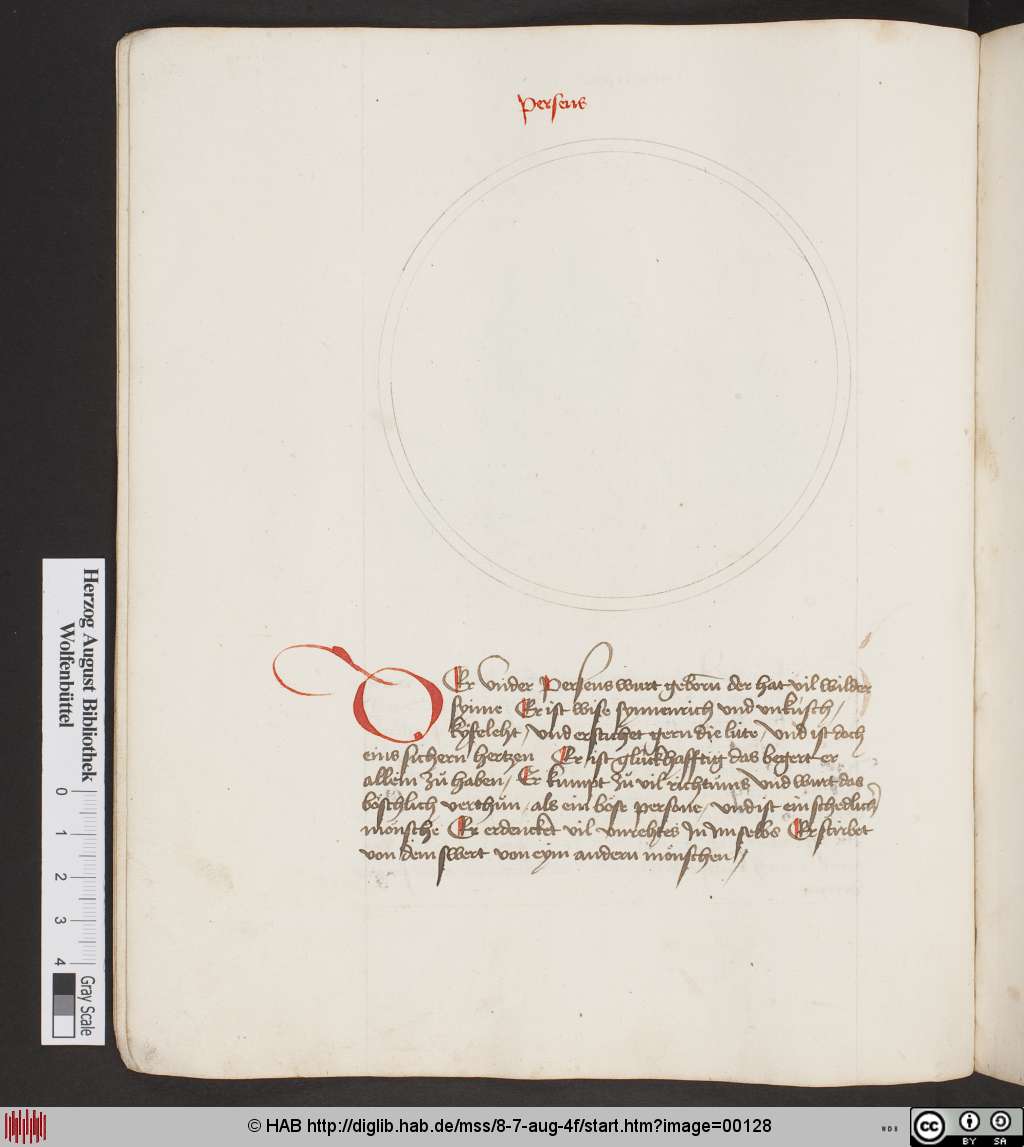 Perseus
DEr vnder Perseus wurt geborn der hat vil wilder
synne Er ist wise synnenrich vnd vnkusch /
kyfeleht / vnd erstichet gern die lüte / vnd ist doch
eins sichern hertzen Er ist glückhafftig das begert er
allein zü haben / Er kumpt zü vil richtüms vnd wurt das
böschlich verthün / als ein böse persone / vnd ist ein schedlich
mönsche Er erdencket vil vnrehtes In Im selbs Er stirbet
von dem swert von eym andern mönschen /
Herzog August Bibliothek
Wolfenbüttel
0
1
2
3
4
Gray Scale
© HAB http://diglib.hab.de/mss/8-7-aug-4f/start.htm?image=00128
WDB
cc
BY SA